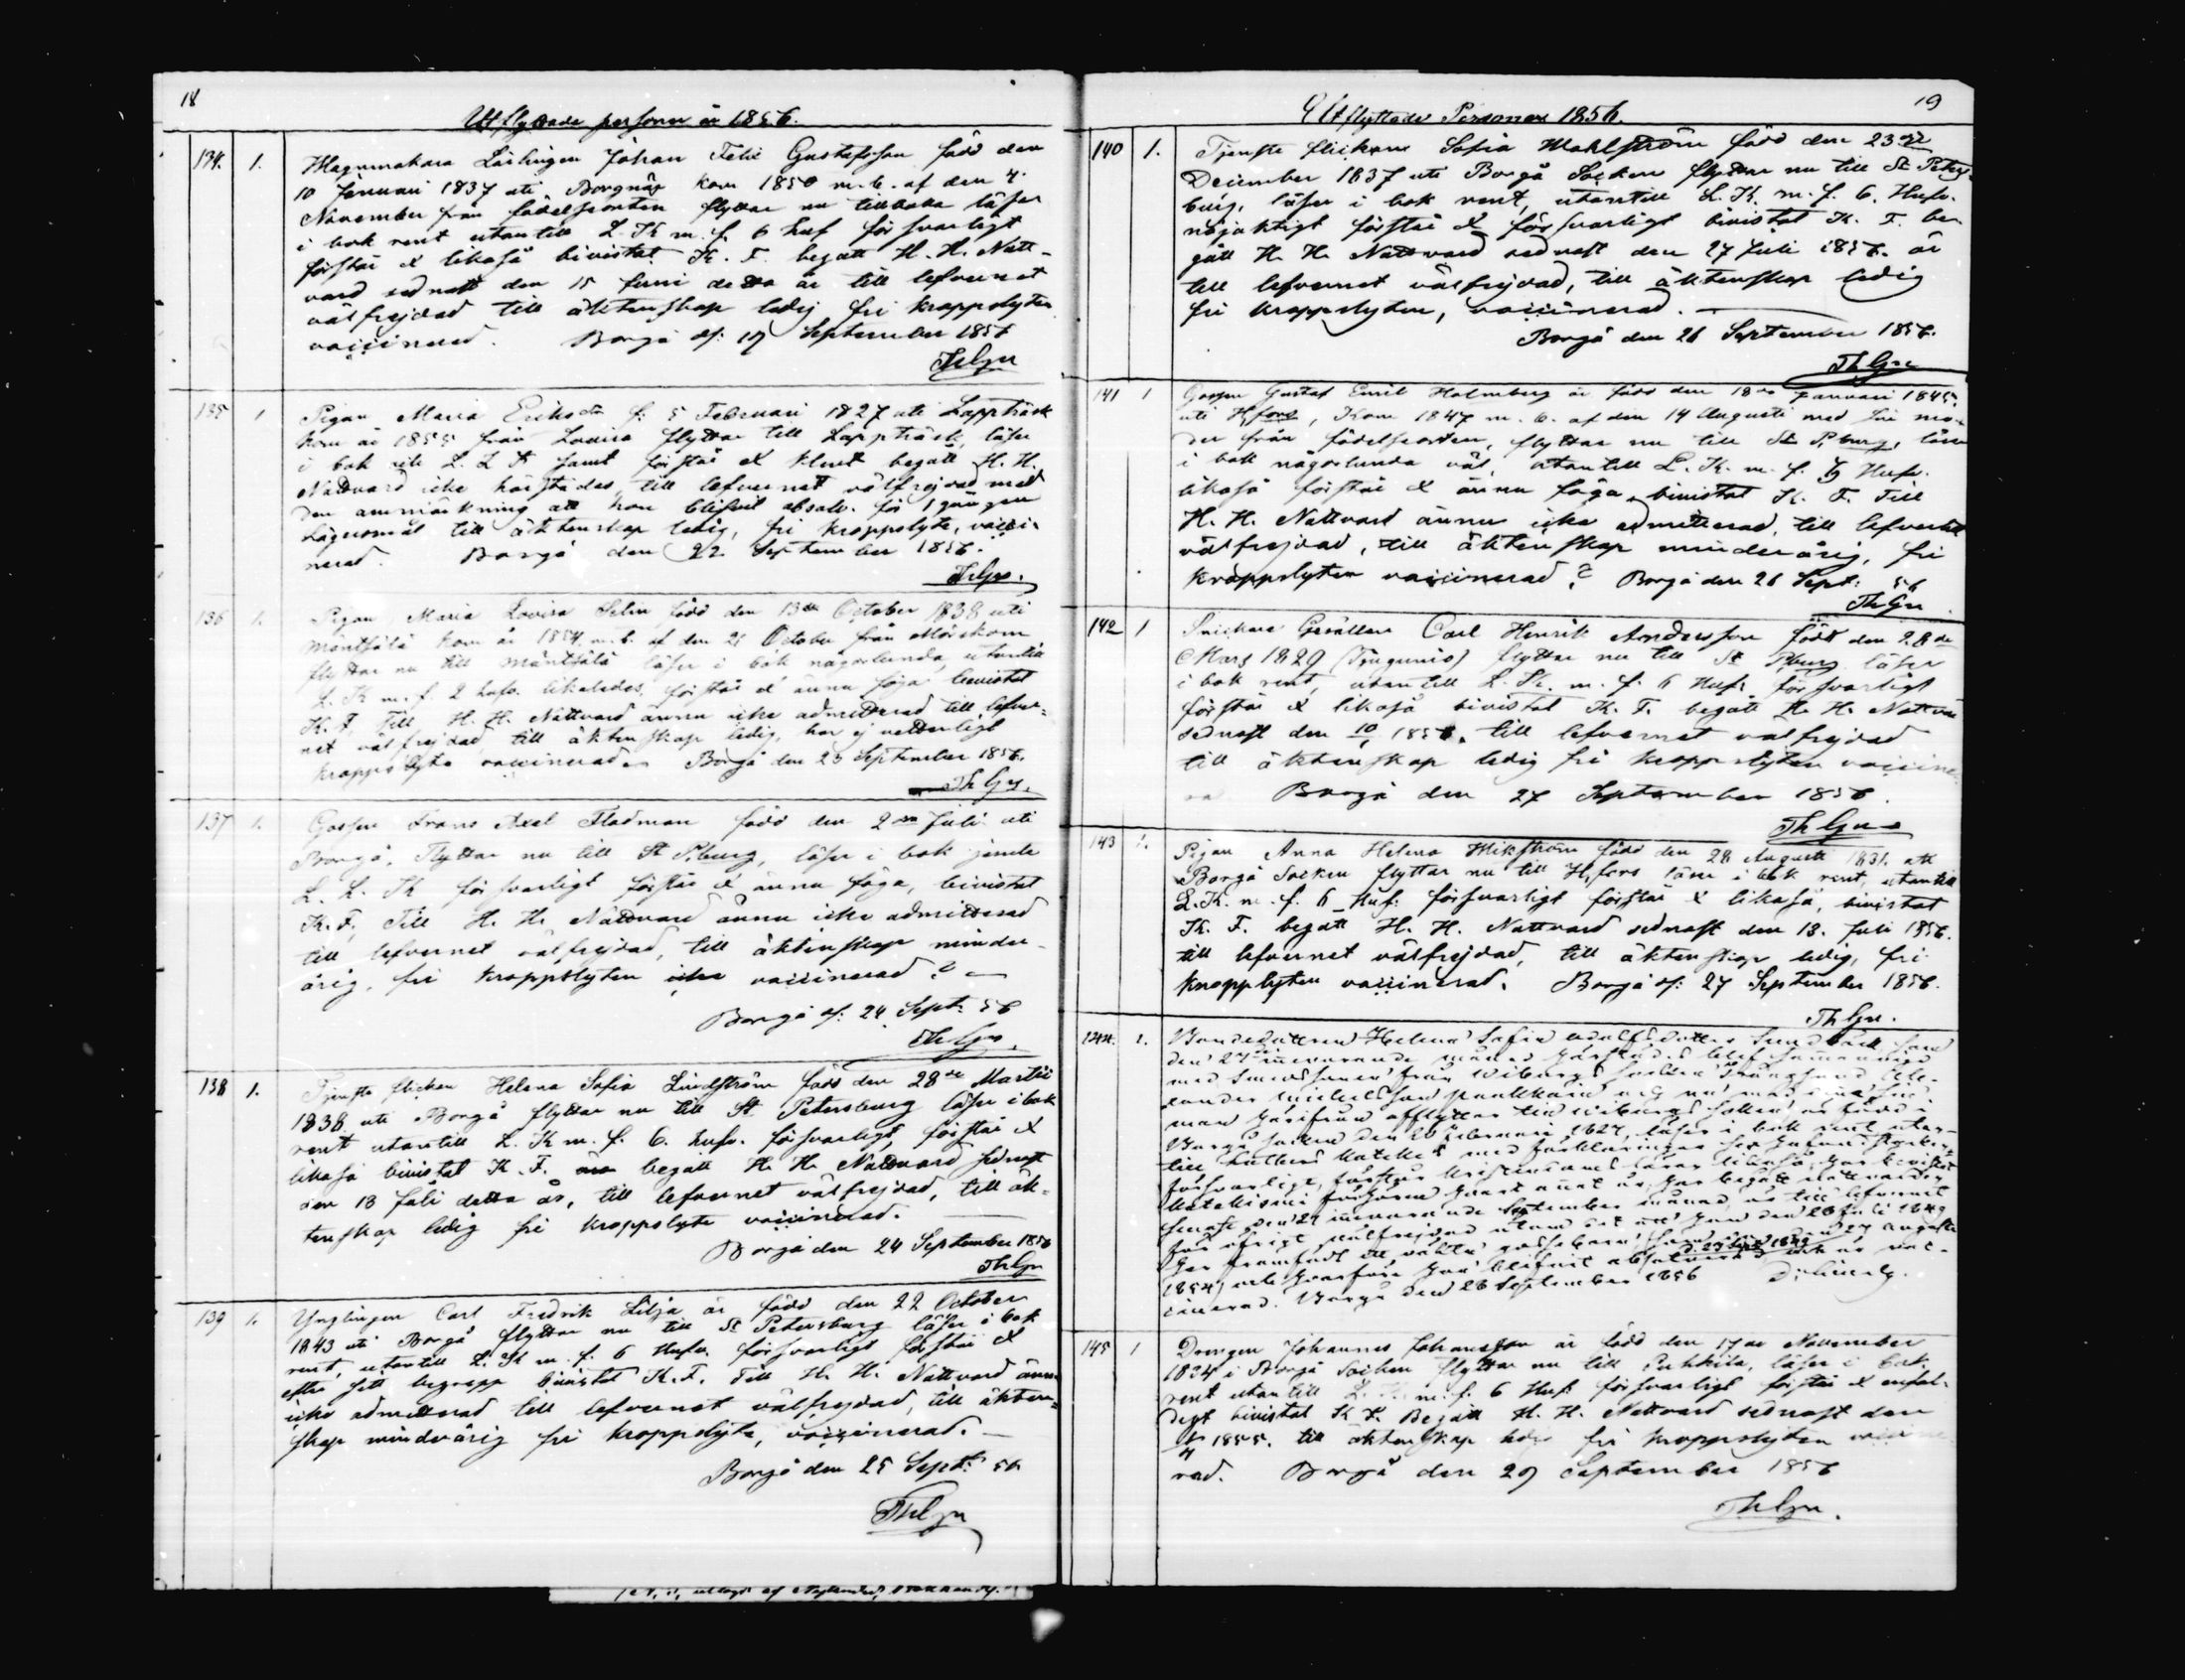 18
Utflyttade personer år 1856.
134. 1. Wagnmakare Lärlingen Johan Felix Gustafsson född den
10 Januari 1837 uti Borgnäs kom 1850 m. b. af den 4
November från födelseorten flyttar nu tillbaka läser
i bok rent utantill L. K. m. f. 6 huf. försvarligt
förstår & likaså bivistat K. F. begått H. H. Natt-
vard sednast den 15 Juni detta år till lefvernet
välfrejdad till äktenskap ledig fri kroppslyten
vaccinerad. Borgå d: 19 September 1856
ThGrn
135 1 Pigan Maria Eriksdr f: 5 Februari 1827 uti Lappträsk
kom år 1855 från Lovisa flyttar till Lappträsk, läser
i bok L. L. K. samt förstår & klent begått H. H.
Nattvard icke härstädes, till lefvernet välfrejdad med
den anmärkning att hon blifvit absolv. för 1 gången
Lägersmål till äktenskap ledig, fri kroppslyte, vacci-
nerad. Borgå den 22 September 1856.
ThGrn.
136 1. Pigan Maria Lovisa Selin född den 13de October 1838 uti
Mäntsälä kom år 1854 m. b. af den 21 October från Mörskom
flyttar nu till Mäntsälä läser i bok någorlunda, utantill
L. K. m. f. 2 hufv. likaledes, förstår & ännu föga bevistat
K. F. Till H. H. Nattvard ännu icke admitterad till lefver-
net välfrejdad till äktenskap ledig, har ej vetterligt
kroppslyte vaccinerad. Borgå den 23 September 1856.
ThGrn.
137 1. Gossen Frans Axel Stadman född den 2dra Juli uti
Borgå, flyttar nu till St P.burg, läser i bok jemte
L. L. K. försvarligt förstår & ännu föga, bivistat
K. F. Till H. H. Nattvard ännu icke admitterad
till lefvernet välfrejdad, till äktenskap minder-
årig, fri kroppslyten icke vaccinerad?
Borgå d: 24 Sept: 56
ThGrn.
138 1. Tjenste flickan Helena Sofia Lindström född den 28de Martii
1838 uti Borgå flyttar nu till St Petersburg läser i bok
rent utantill L. K. m. f. 6. hufv. försvarligt, förstår &
likaså bivistat K. F. begått H. H. Nattvard sednast
den 13 Juli detta år, till lefvernet välfrejdad, till äk-
tenskap ledig fri kroppslyte vaccinerad.
Borgå den 24 September 1856
ThGrn
139 1. Ynglingen Carl Fredrik Lilja är född den 22 October
1843 uti Borgå flyttar nu till St Petersburg läser i bok
rent, utantill L. K. m. f. 6 Hufv. försvarligt förstår &
efter sitt begrepp bivistat K. F. Till H. H. Nattvard ännu
icke admitterad till lefvernet välfrejdad, till äkten-
skap minderårig fri kroppslyte, vaccinerad.
Borgå den 25 Sept: 56
ThGrn
19
Utflyttade Personer 1856.
140 1. Tjenste flickan Sofia Wahlström född den 23dje
December 1837 uti Borgå Socken flyttar nu till St Peters-
burg, läser i bok rent, utantill L. K. m. f. 6. Hufv.
nöjaktigt förstår & försvarligt bivistat K. F. be-
gått H. H. Nattvard sednast den 27 Juli 1856. är
till lefvernet välfrejdad, till äktenskap ledig
fri kroppslyten, vaccinerad.
Borgå den 26 September 1856.
ThGrn
141 1 Gossen Gustaf Emil Holmberg är född den 18de Januari 1845
uti H.fors, Kom 1847 m. b. af den 14 Augusti med sin mo-
der från födelseorten, flyttar nu till St P.burg, läser
i bok någorlunda väl, utantill L. K. m. f. Hufv.
likaså förstår & ännu föga, bivistat K. F. Till
H. H. Nattvard ännu icke admitterad, till lefvernet
välfrejdad, till äktenskap minderårig, fri
kroppslyten vaccinerad? Borgå den 26 Sept: 56
ThGrn
142 1 Snickare Gesällen Carl Henrik Andersson född den 28de
Mars 1829 flyttar nu till St P.burg läser
i bok rent, utantill L. K. m. f. 6 Huf: försvarligt
förstår & likaså bivistat K. F. begått H. H. Nattvar
sednast den 1856. till lefvernet välfrejdad
till äktenskap ledig fri kroppslyten vaccine
Borgå den 27 September 1856.
ThGrn
143 1. Pigan Anna Helena Wikström född den 28 Augusti 1831. uti
Borgå Socken flyttar nu till H.fors läser i bok rent, utantill
L. K. m. f. 6 Huf: försvarligt förstår & likaså, bivistat
K. F. begått H. H. Nattvard sednast den 13. Juli 1856.
till lefvernet välfrejdad, till äktenskap ledig, fri
kropplyten vaccinerad. Borgå d: 27 September 1856.
ThGrn.
144. 1. Bondedottren Helena Sofia Adolfsdotter Sundbäck som
den 27 innevarande månad härstädes blef sammanvigd
med från Wiborgs socken
nu med
man härifrån afflyttar till Wiborgs socken är född i
Borgå socken den 20 Februari 1827, läser i bok rent utan-
till Lutheri Kateches med förklaringar
försvarligt, förstår kristendoms läran likaså, har bevistat
Katekismi förhören hvart annat år, har begått nattvarden
senast den 21 innevarande September månad, är till lefvernet
för öfrigt välfrejdad utom det att hon den 28 Juli 1849
har framfödt 27 Augusti
1854, och hvarföre hon blifvit absolverad är vac-
cinerad. Borgå den 28 September 1856
145 1 Drengen Johannes Johansson är född den 17de November
1834 i Borgå Socken flyttar nu till Pukkila, läser i bok
rent utantill L. K. m. f. 6 Huf: försvarligt förstår & enfal-
digt bivistat K F. Begått H. H. Nattvard sednast den
1855. till äktenskap ledig fri kroppslyten vaccine
rad. Borgå den 29 September 1856
ThGrn.